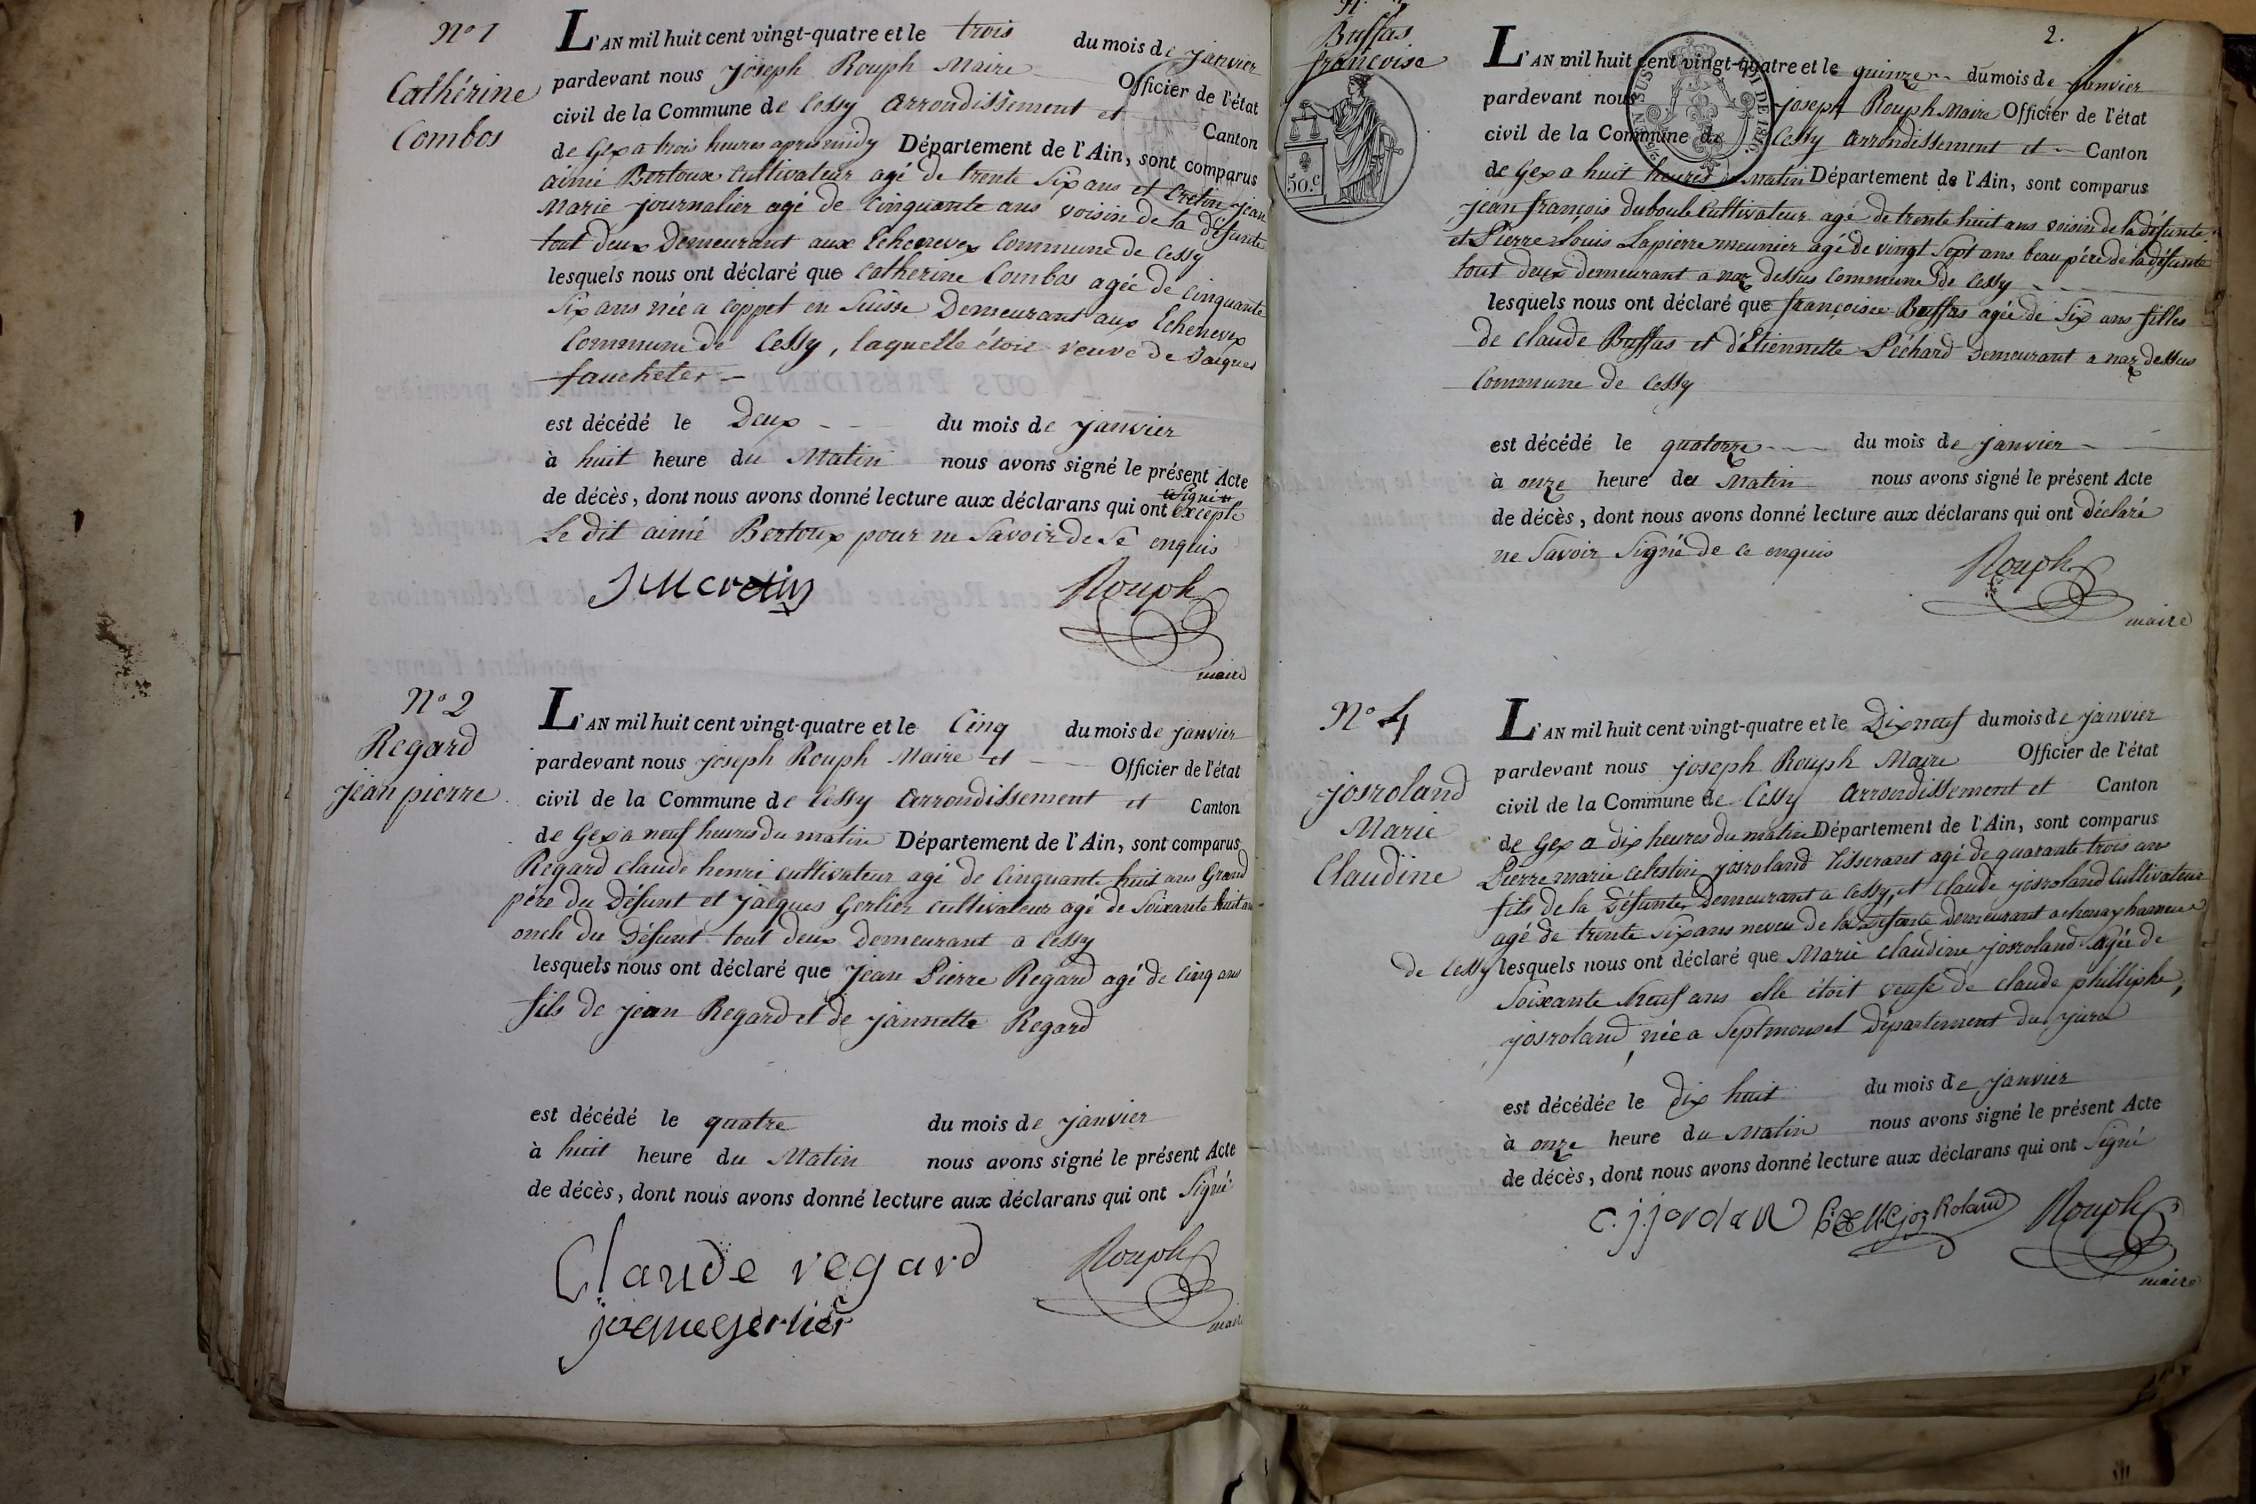 N° 1
Cathérine
Combos
L'AN mil huit cent vingt-quatre et le trois du mois de janvier
pardevant nous joseph Rouph Maire Officier de l'état
civil de la Commune de Cessy arrondissement et Canton
de Gex a trois heures apres midy Département de l'Ain, sont comparus
aimé Bertoux cultivateur agé de trente six ans et Cretin jean
Marie journalier agé de cinquante ans voisin de la défunte
tout deux Demeurant aux Echenevex Commune de Cessy
lesquels nous ont déclaré que Catherine Combos agée de cinquante
Six ans née a coppet en Suisse Demeurant aux Echenevex
Commune de Cessy, laquelle étoit veuve de Jaques
faucheter
est décédé le Deux du mois de janvier
à huit heure du Matin nous avons signé le présent Acte
de décès, dont nous avons donné lecture aux déclarans qui ont signé excepte
Le dit aimé Bertoux pour ne Savoir de Sé enquis
J M cretin Rouph
maire
N° 2
Regard
jean pierre
L'AN mil huit cent vingt-quatre et le Cinq du mois de janvier
pardevant nous joseph Rouph Maire et Officier de l'état
civil de la Commune de Cessy arrondissement et Canton
de Gex a neuf heures du matin Département de l'Ain, sont comparus
Regard claude henri cultivateur agé de Cinquante huit ans Grand
pére du Défunt et jacques Gerlier cultivateur agé de Soixante huit an
oncle du Défunt tout deux Demeurant a Cessy
lesquels nous ont déclaré que jean Pierre Regard agé de Cinq ans
fils de jean Regard et de jannette Regard
est décédé le quatre du mois de janvier
à huit heure du Matin nous avons signé le présent Acte
de décès, dont nous avons donné lecture aux déclarans qui ont Signé
Claude regard Rouph
jaquegerlier maire
Buffas
françoise
50.c
2.
L'AN mil huit cent vingt-quatre et le quinze du mois de janvier
pardevant nous joseph Rouph Maire Officier de l'état
civil de la Commune de Cessy arrondissement et Canton
de Gex a huit heures du Matin Département de l'Ain, sont comparus
jean françois duboule Cultivateur agé de trente huit ans voisin de la défunte
et Pierre Louis Lapierre meunier agé de vingt Sept ans beau pére de la défunte
tout deux demeurant a naz dessus Commune De Cessy
lesquels nous ont déclaré que françoise Buffas agée de Six ans filles
de Claude Buffas et d'Etiennette Péchard Demeurant a naz dessus
Commune de Cessy
est décédé le quatorze du mois de janvier
à onze heure des Matin nous avons signé le présent Acte
de décès, dont nous avons donné lecture aux déclarans qui ont déclaré
ne Savoir Signé de ce enquis
Rouph
maire
N° 4
josroland
Marie
Claudine
L'AN mil huit cent vingt-quatre et le Dix neuf du mois de janvier
pardevant nous joseph Rouph Maire Officier de l'état
civil de la Commune de Cessy arrondissement et Canton
de Gex a dix heures du matin Département de l'Ain, sont comparus
Pierre marie Celestin josroland tisserant agé de quarante trois ans
fils de la Défunte, Demeurant a Cessy, et Claude josroland Cultivateur
agé de trente Six ans neveu de la Défunte demeurant a chenay hameau
de Cessy lesquels nous ont déclaré que Marie Claudine josroland agée de
Soixante Neuf ans elle étoit veufe de claude philliphe,
josroland, née a Septmoncel Département du jura
est décédée le dix huit du mois de janvier
à onze heure du Matin nous avons signé le présent Acte
de décès, dont nous avons donné lecture aux déclarans qui ont Signé
Roland Rouph
maire